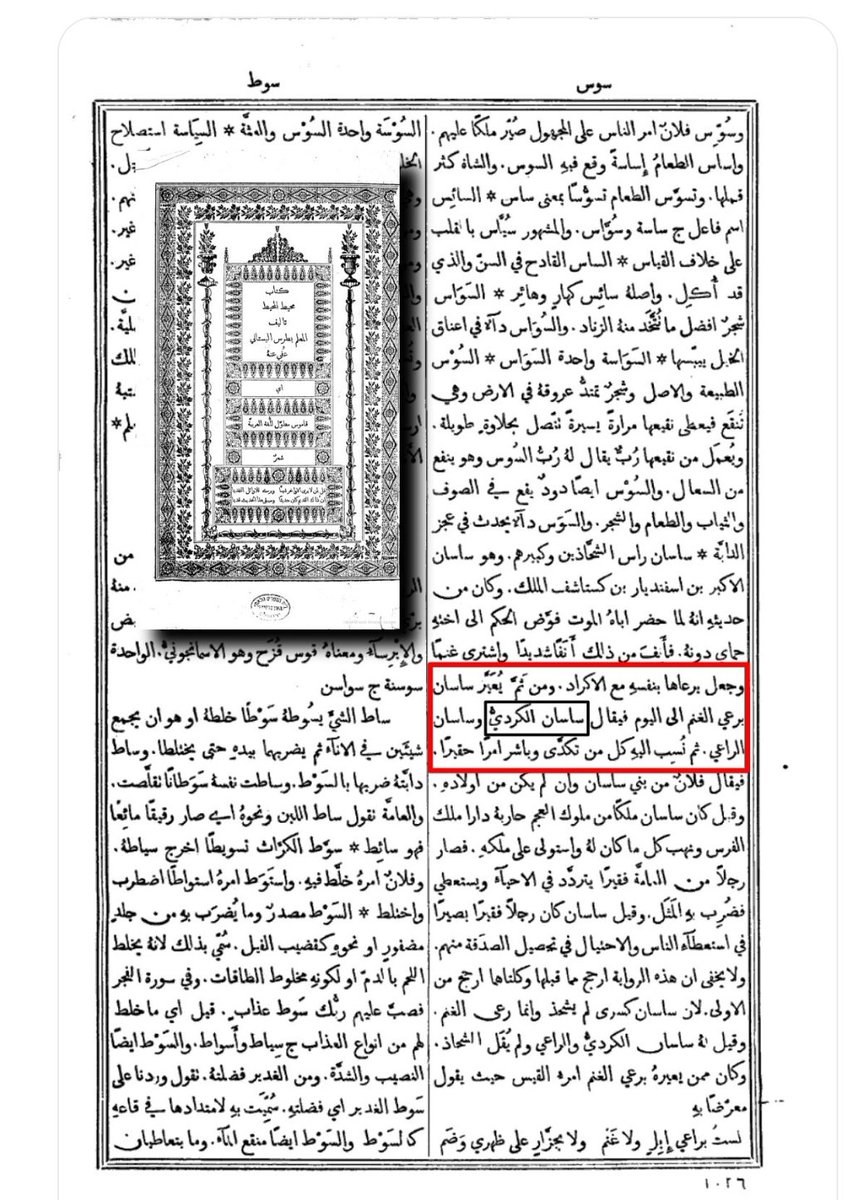 سوس
سوط
وسُوِّس فلانٌ امر الناس على المجهول صُيِّر ملكًا عليهم.
واساس الطعامُ إساسةً وقع فيهِ السوس. والشاة كثر
قملها. وتسوَّس الطعام تسوُّسًا بمعنى ساس * السائِس
اسم فاعل ج ساسة وسُوَّاس. والمشهور سُيَّاس بالقلب
على خلاف القياس * الساس القادح في السنّ والذي
قد أُكِل. واصلهُ سائِس كهارٍ وهائِر * السَوَاس
شجرٌ افضل ما يُتَّخَذ منهُ الزناد. والسُوَاس دآءٌ في اعناق
الخيل ييبّسها * السَوَاسة واحدة السَوَاس * السُوْس
الطبيعة والاصل وشجرٌ تمتدُّ عروقهُ في الارض وهي
تُنقَع فيعطى نقيعها مرارةً يسيرةً تتَّصل بحلاوةٍ طويلة.
ويُعمَل من نقيعها رُبٌّ يقال لهُ رُبُّ السُوس وهو ينفع
من السعال. والسُوْس ايضًا دودٌ يقع في الصوف
والثياب والطعام والشجر. والسَوَس دآءٌ يحدث في عجز
الدابَّة * ساسان راس الشحَّاذين وكبيرهم. وهو ساسان
الاكبر بن اسفنديار بن كستاشف الملك. وكان من
حديثهِ انهُ لما حضر اباهُ الموت فوَّض الحكم الى اختهِ
حماى دونهُ. فأَنِفَ من ذلك أَنَفًا شديدًا واشترى غنمًا
وجعل يرعاها بنفسهِ مع الاكراد. ومن ثَمَّ يُعَيَّر ساسان
برعي الغنم الى اليوم فيقال ساسان الكرديُّ وساسان
الراعي. ثم نُسِب اليهِ كل من تكدَّى وباشر امرًا حقيرًا.
فيقال فلانٌ من بني ساسان وإن لم يكن من اولادهِ.
وقيل كان ساسان ملكًا من ملوك العجم حاربهُ دارا ملك
الفرس ونهب كل ما كان لهُ واستولى على ملكهِ. فصار
رجلًا من العامَّة فقيرًا يتردَّد في الاحيآء ويستعطي
فضُرِب بهِ المَثَل. وقيل ساسان كان رجلًا فقيرًا بصيرًا
في استعطآءِ الناس والاحتيال في تحصيل الصدَقة منهم.
ولا يخفى ان هذه الرواية ارجح مما قبلها وكلتاها ارجح من
الاولى. لان ساسان كسرى لم يشحذ وانما رعى الغنم.
وقيل لهُ ساسان الكرديُّ والراعي ولم يُقَل الشحاذ.
وكان ممن يعيرهُ برعي الغنم امرءُ القيس حيث يقول
معرّضًا بهِ
لستُ براعي إِبِلٍ ولا غَنَم ولا بجزَّارٍ على ظهري وَضَم
السُوْسَة واحدة السُوْس والعثَّة * السِيَاسة استصلاح
كتاب
محيط المحيط
تاليف
المعلم بطرس البستاني
عُفي عنهُ
اي
قاموس مطوَّل للغة العربية
والإِيرِسآءُ ومعناهُ قوس قُزَح وهو الاسمانجونيُّ. الواحدة
سوسنة ج سواسن
ساط الشيَّ يسُوطهُ سَوْطًا خلطهُ او هو ان يجمع
شيئَين في الانآء ثم يضربهما بيدهِ حتى يختلطا. وساط
دابَّتهُ ضربها بالسَوْط. وساطت نفسهُ سَوَطانًا تقلَّصت.
والعامَّة تقول ساط اللبن ونحوهُ اي صار رقيقًا مائِعًا
فهو سائِط * سوَّط الكرَّاث تسويطًا اخرج سياطهُ.
وفلانٌ امرهُ خلَّط فيهِ. واستَوَط امرهُ استواطًا اضطرب
واختلط * السَوْط مصدرٌ وما يُضرَب بهِ من جلدٍ
مضفورٍ او نحوهِ كقضيب الفيل. سُمّي بذلك لانهُ يخلط
اللحم بالدم او لكونهِ مخلوط الطاقات. وفي سورة الفجر
فصبَّ عليهم ربُّك سَوط عذابٍ. قيل اي ما خلط
لهم من انواع العذاب ج سِياط وأَسواط. والسَوْط ايضًا
النصيب والشدَّة. ومن الغدير فضلتهُ. تقول وردنا على
سَوط الغدير اي فضلتهِ. سُمِّيَت بهِ لامتدادها في قاعهِ
كالسَوْط والسَوْط ايضًا منقع المآءِ. وما يتعاطيان
١٠٢٦